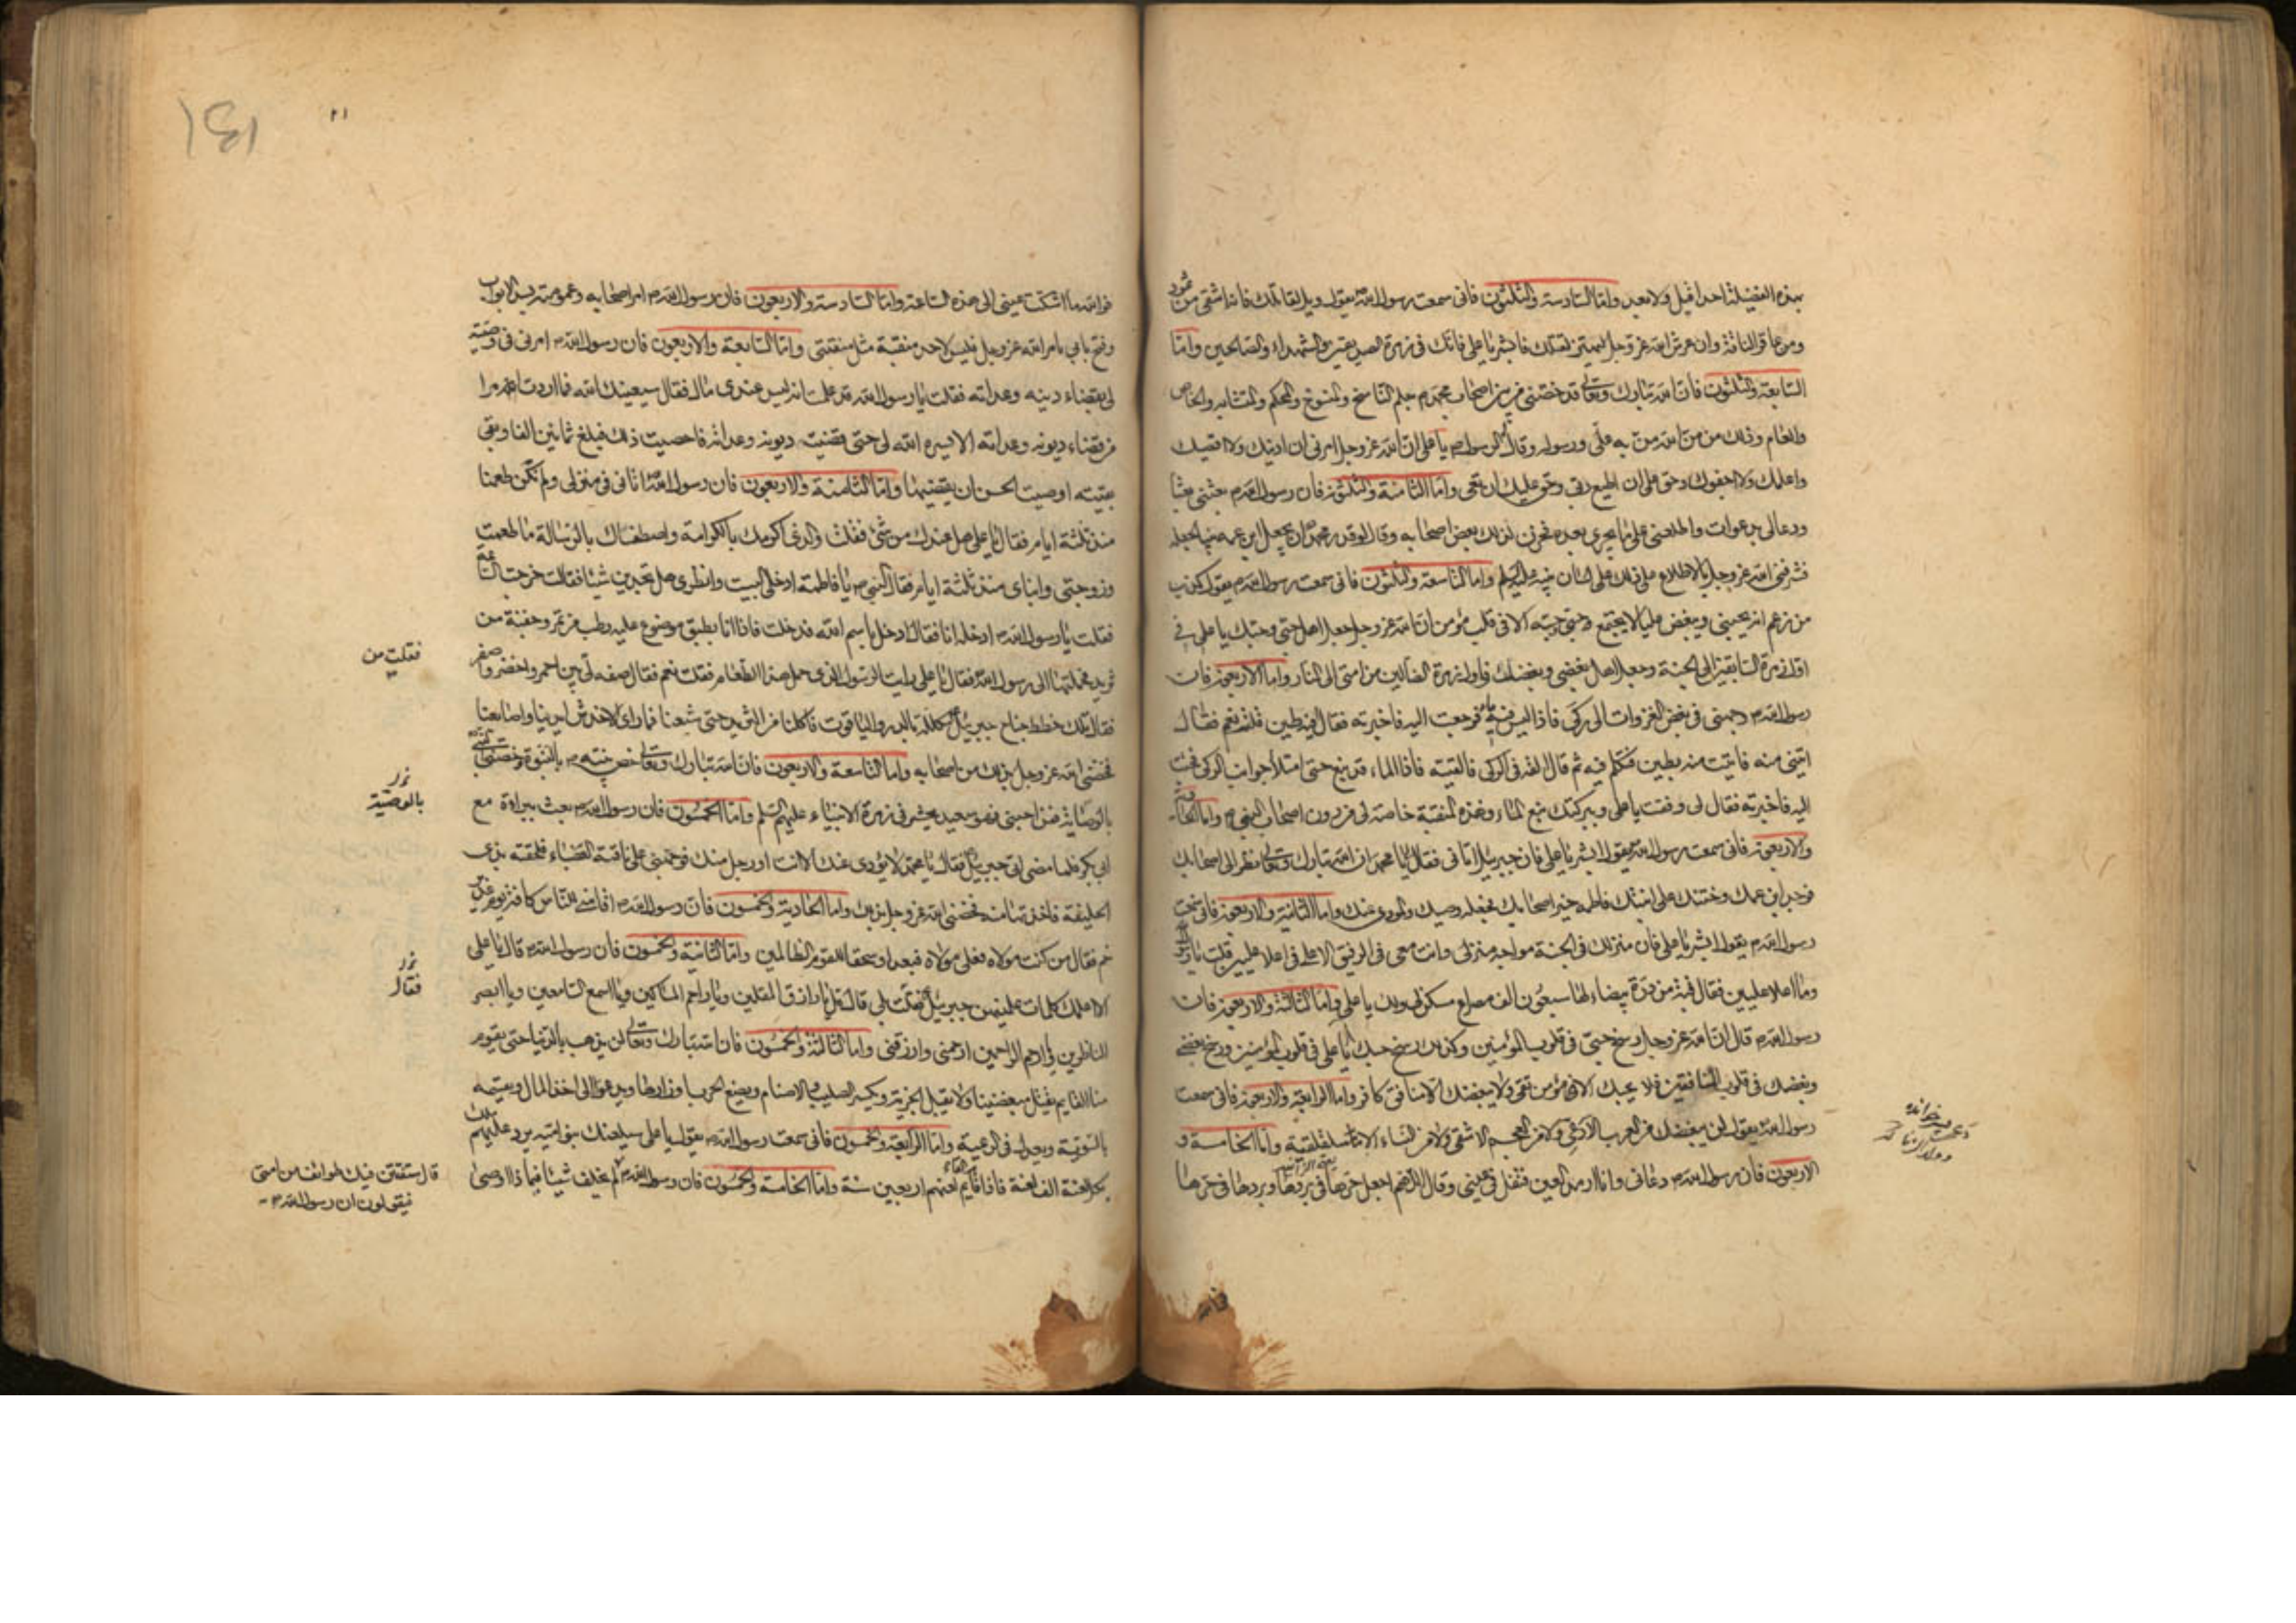 بهذه الفضيلة احدا قبل ولا بعد واما السادسة والثلثون فانى سمعت رسول الله ص يقول ويل لقاتلك فانه اشقى من ثمود
ومن عاقر الناقة وان عرش الله عز وجل ليهتز لقتلك فابشر يا على فانك فى زمرة الصديقين والشهداء والصالحين واما
السابعة والثلثون فان الله تبارك وتعالى قد خصنى من بين اصحاب محمد ص بعلم الناسخ والمنسوخ والمحكم والمتشابه والخاص
والعام وذلك من من الله من به على وعلى رسوله وقال لى الرسول ص يا على ان الله عز وجل امرنى ان ادنيك ولا اقصيك
واعلمك ولا اجفوك وحق على ان اطيع ربى وحق عليك ان تعى واما الثامنة والثلثون فان رسول الله ص بعثنى بعثا
ودعا لى بدعوات واطلعنى على ما يجرى بعده فحزن لذلك بعض اصحابه وقال لو قدر محمد ان يجعل ابن عمه نبيا لجعله
فشرفنى الله عز وجل بالاطلاع على ذلك على لسان نبيه عليه السلم واما التاسعة والثلثون فانى سمعت رسول الله ص يقول كذب
من زعم انه يحبنى ويبغض عليا لا يجتمع حبى وحبه الا فى قلب مؤمن ان الله عز وجل جعل اهل حبى وحبك يا على فى
اول زمرة السابقين الى الجنة وجعل اهل بغضى وبغضك فى اول زمرة الضالين من امتى الى النار واما الاربعون فان
رسول الله ص وجهنى فى بعض الغزوات الى ركى فاذا ليس فيه ماء فرجعت اليه فاخبرته فقال افيه طين فقلت نعم فقال
ايتنى منه فاتيت منه بطين فتكلم فيه ثم قال القه فى الركى فالقيته فاذا الماء قد نبع حتى امتلأ جوانب الركى فجئت
اليه فاخبرته فقال لى وفقت يا على وببركتك نبع الماء وهذه المنقبة خاصة لى من دون اصحاب النبى ص واما الحادية
والاربعون فانى سمعت رسول الله ص يقول ابشر يا على فان جبرئيل اتانى فقال لى يا محمد ان الله تبارك وتعالى نظر الى اصحابك
فوجد ابن عمك وختنك على ابنتك فاطمة خير اصحابك فجعله وصيك والمؤدى عنك واما الثانية والاربعون فانى سمعت
رسول الله ص يقول ابشر يا على فان منزلك فى الجنة مواجه منزلى وانت معى فى الرفيق الاعلى فى اعلا عليين قلت يا رسول الله
وما اعلا عليين فقال قبة من درة بيضاء لها سبعون الف مصراع مسكن لى ولك يا على واما الثالثة والاربعون فان
رسول الله ص قال ان الله عز وجل رسخ حبى فى قلوب المؤمنين وكذلك رسخ حبك يا على فى قلوب المؤمنين ورسخ بغضى
وبغضك فى قلوب المنافقين فلا يحبك الا مؤمن تقى ولا يبغضك الا منافق كافر واما الرابعة والاربعون فانى سمعت
رسول الله ص يقول لن يبغضك من العرب الا دعى ولا من العجم الا شقى ولا من النساء الا سلقلقية واما الخامسة و
الاربعون فان رسول الله ص دعانى وانا ارمد العين فتفل فى عينى وقال اللهم اجعل حرها فى بردها وبردها فى حرها
فوالله
فوالله ما اشتكت عينى الى هذه الساعة واما السادسة والاربعون فان رسول الله ص امر اصحابه وعمومته بسد الابواب
وفتح بابى بامر الله عز وجل فليس لاحد منقبة مثل منقبتى واما السابعة والاربعون فان رسول الله ص امرنى فى وصيته
لى بقضاء دينه وعداته فقلت يا رسول الله قد علمت انه ليس عندى مال فقال سيعينك الله فما اردت امرا
من قضاء ديونه وعداته الا يسره الله لى حتى قضيت ديونه وعداته فاحصيت ذلك فبلغ ثمانين الفا وبقى
بقيته اوصيت الحسن ان يقضيها واما الثامنة والاربعون فان رسول الله ص اتانى فى منزلى ولم تكن طعمنا
منذ ثلثة ايام فقال يا على هل عندك من شئ فقلت والذى اكرمك بالكرامة واصطفاك بالرسالة ما طعمت
وزوجتى وابناى منذ ثلثة ايام فقال النبى ص يا فاطمة ادخلى البيت وانظرى هل تجدين شيئا فقالت خرجت الساعة
فقلت يا رسول الله ص ادخله انا فقال ادخل باسم الله فدخلت فاذا انا بطبق موضوع عليه رطب من تمر وجفنة من
ثريد فحملتها الى رسول الله ص فقال يا على رايت الرسول الذى حمل هذا الطعام فقلت نعم فقال صفه لى من بين احمر واخضر واصفر
فقال تلك خطط جناح جبرئيل مكللة بالدر والياقوت فاكلنا من الثريد حتى شبعنا فما راى الا خدش ايدينا واصابعنا
فخصنى الله عز وجل بذلك من اصحابه واما التاسعة والاربعون فان الله تبارك وتعالى خص نبيه ص بالنبوة وخصنى النبى
بالوصاية فمن احبنى فهو سعيد يحشر فى زمرة الانبياء عليهم السلم واما الخمسون فان رسول الله ص بعث ببراءة مع
ابى بكر فلما مضى اتى جبرئيل فقال يا محمد لا يؤدى عنك الا انت او رجل منك فوجهنى على ناقته العضباء فلحقته بذى
الحليفة فاخذتها منه فخصنى الله عز وجل بذلك واما الحادية والخمسون فان رسول الله ص اقامنى للناس كافة يوم غدير
خم فقال من كنت مولاه فعلى مولاه فبعدا وسحقا للقوم الظالمين واما الثانية والخمسون فان رسول الله ص قال يا على
الا اعلمك كلمات علمنيهن جبرئيل فقلت بلى قال قل يا رازق المقلين ويا راحم المساكين ويا اسمع السامعين ويا ابصر
الناظرين ويا ارحم الراحمين ارحمنى وارزقنى واما الثالثة والخمسون فان الله تبارك وتعالى لن يذهب بالدنيا حتى يقوم
منا القايم يقتل مبغضينا ولا يقبل الجزية ويكسر الصليب والاصنام ويضع الحرب اوزارها ويدعو الى اخذ المال ويقسمه
بالسوية ويعدل فى الرعية واما الرابعة والخمسون فانى سمعت رسول الله ص يقول يا على سيلعنك بنو امية ويرد عليهم ملك
بكل لعنة الف لعنة فاذا قام القايم لعنهم اربعين سنة واما الخامسة والخمسون فان رسول الله ص لم يخلف شيئا فبماذا اوصى
فقلت من
بالوصية
فقال
قال ستفتتن فيك طوائف من امتى
فيقولون ان رسول الله ص